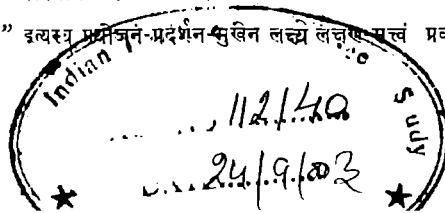 ” इत्यत्र प्रयोजनं-प्रदर्शन-मुखेन लक्ष्ये लक्षण-सत्त्वं प्रद
Indian Study
112140
24/9/03